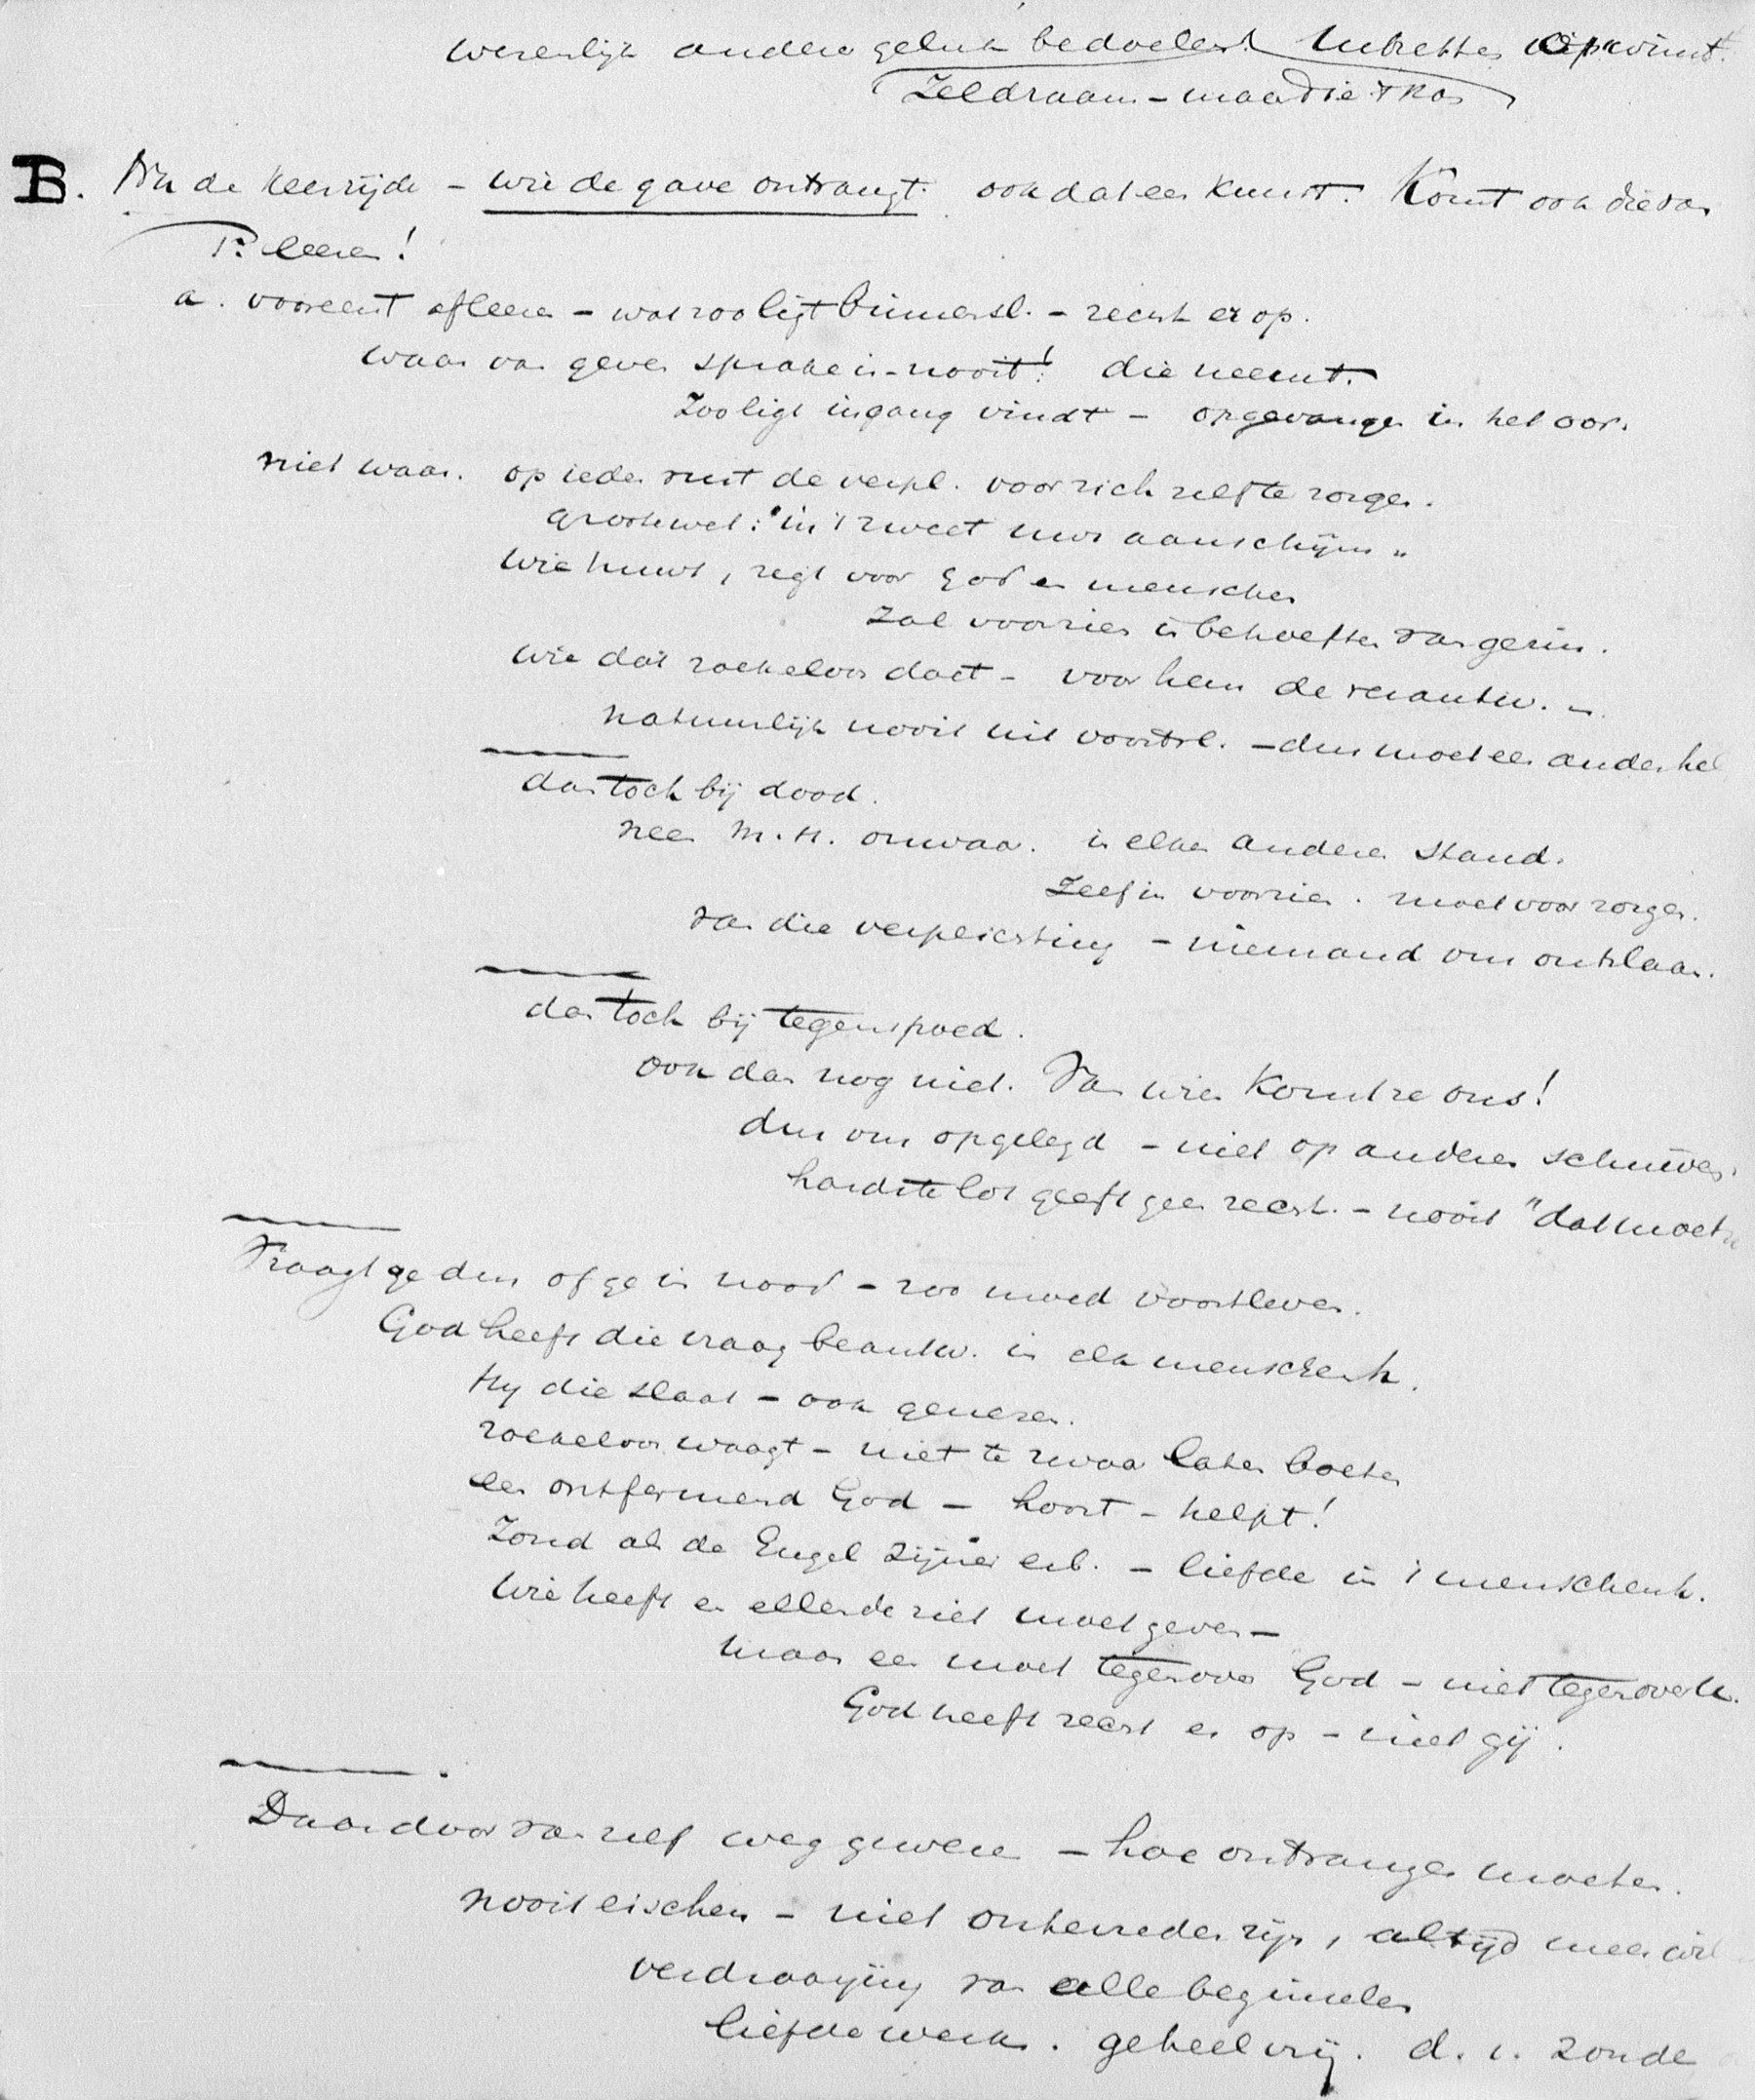 wezenlijk andere geluk bedoelen!
B. Nu de keerzijde - wie de gave ontvangt. ook dat een kunst. Komt ook die van
P. leeren!
a. vooreerst afleeren - wat zoo ligt binnensl. - recht er op.
waar van geven sprake is - nooit! die neemt.
Zoo ligt ingang vindt - opgevangen in het oor.
niet waar. op ieder rust de verpl. voor zich zelf te zorgen.
grootewet: "in 't zweet uws aanschijns"
Wie huwt, zegt voor God en menschen
Zal voorzien in behoeften van gezin.
Wie dat roekeloos doet - voor hem de verantw. -
natuurlijk nooit uit voortvl. - dus moet een ander hel
dan toch bij dood.
neen M.H. onwaar. in elken anderen stand.
Zelf in voorzien. moet voor zorgen.
van die verplichting - niemand ons ontslaan.
dan toch bij tegenspoed.
ook dan nog niet. Van wien komt ze ons!
dus ons opgelegd - niet op anderen schuiven.
hardste lot geeft geen recht. - nooit "dat moet
Vraagt ge dus of ge in nood - zoo moed voortleven.
God heeft die vraag beantw. in elk menschenh.
Hy die slaat - ook genezen.
roekeloos waagt - niet te zwaar laten boeten
een ontfermend God - hoort - helpt!
Zond als de Engel zijner erb. - liefde in 't menschenh.
Wie heeft en ellende ziet moet geven -
maar een moet tegenover God - niet tegenover u.
God heeft recht er op - niet gij.
Daardoor van zelf weg gewezen - hoe ontvangen moeten.
nooit eischen - niet ontevreden zijn, altijd meer wil
verdraaijing van alle beginselen
liefdewerk. geheel vrij. d. i. zonde